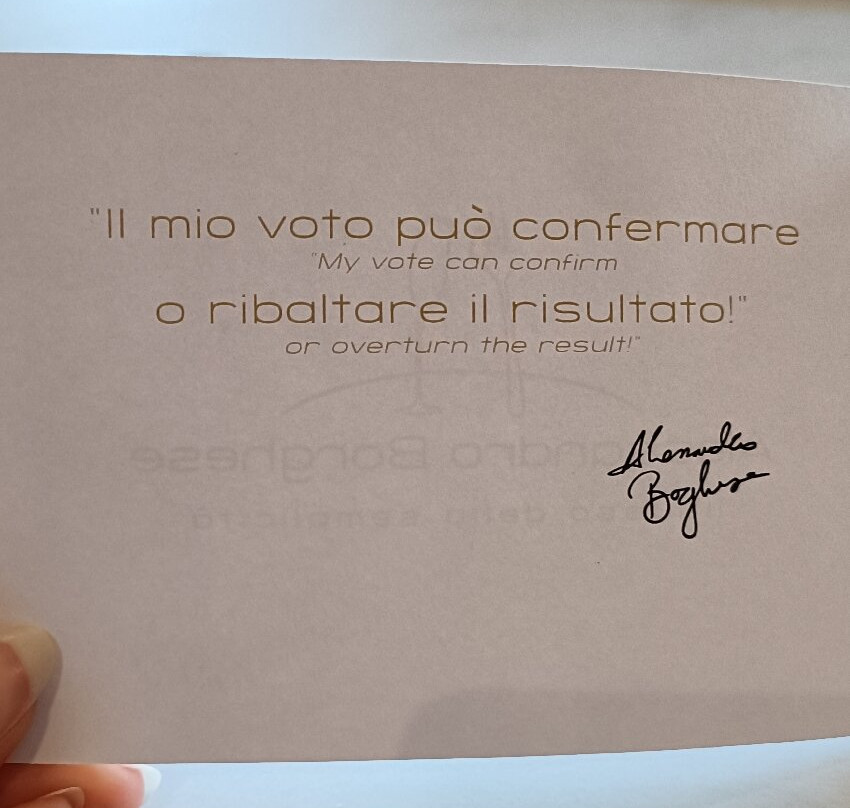 "Il mio voto può confermare
"My vote can confirm
o ribaltare il risultato!"
or overturn the result!"
Alessandro
Borghese
andro Borghese
della semplicità